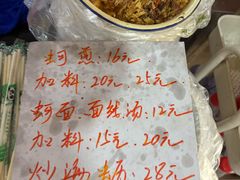 蚵煎:16元
加料:20元 25元
蚵面.面线汤:12元
加料:15元.20元
炒汤 28元